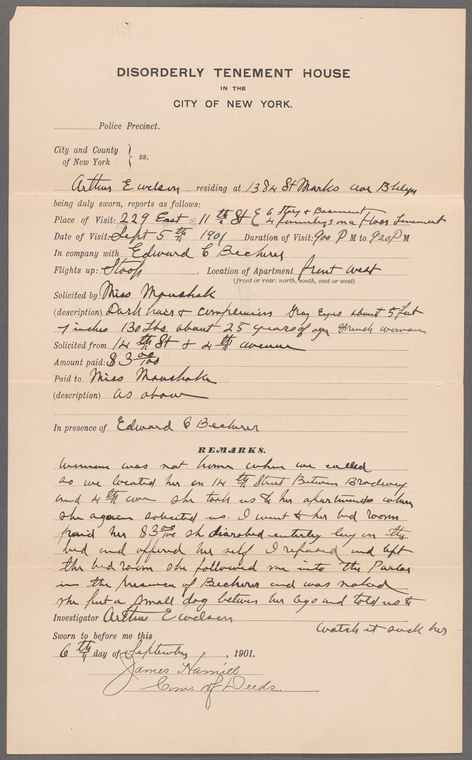 DISORDERLY TENEMENT HOUSE
IN THE
CITY OF NEW YORK.
Police Precinct.
City and County
of New York } ss.
Arthur E Wilson residing at 1384 St Marks ave Bklyn
being duly sworn, reports as follows:
Place of Visit: 229 East 11th St 6 story & Basement
4 familys on a floor Tenement
Date of Visit: Sept 5th 1901 Duration of Visit: 900 P M to 920 P M
In company with Edward C Becherer
Flights up: Stoop Location of Apartment front west
(front or rear; north, south, east or west)
Solicited by Miss Moushak
(description) Dark hair & complexion Gray Eyes about 5 feet
7 inches 130 lbs. about 25 years of age woman
Solicited from 14th St & 4th avenue
Amount paid: $3 00/100
Paid to Miss Moushak
(description) as above
In presence of Edward C Becherer
REMARKS.
Woman was not home when we called
as we located her on 14th Street Between Broadway
and 4th ave she took us to her apartments where
she again solicited us. I went to her bed room
paid her $3 00/100 she disrobed enterly lay on the
bed and offered her self I refused and left
the bed room she followed me into the Parlor
in the presence of Becherer and was naked
she put a small dog between her legs and told us to
watch it suck her
Investigator Arthur E Wilson
Sworn to before me this
6th day of September, 1901.
James Hamill
Com. of Deeds.